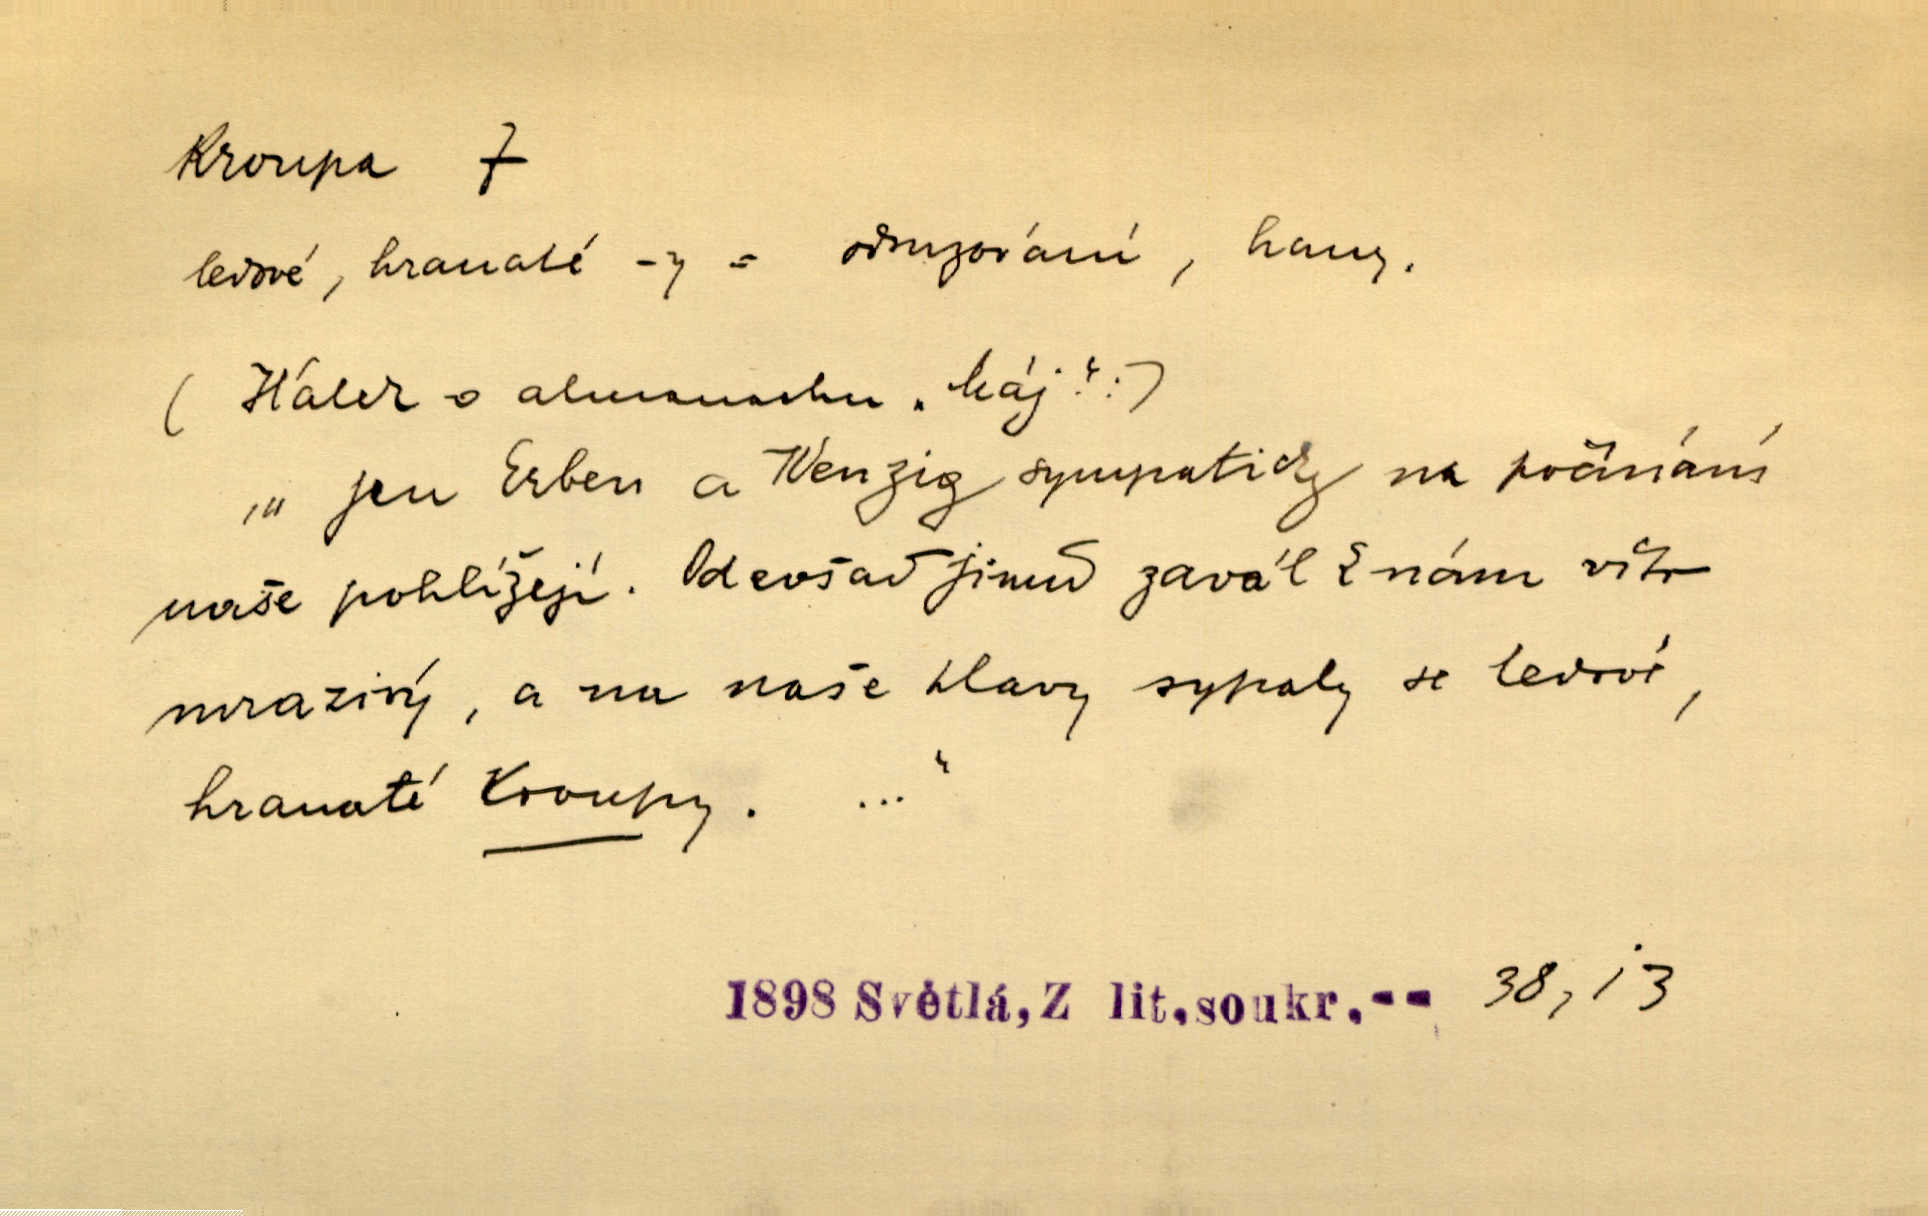 Kroupa f
ledové, hranaté -y = odsuzování, hany.
(Hálek o almanachu „Máj“:)
„jen Erben a Wenzig sympaticky na počínání
naše pohlížejí. Odevšad jinud zavál k nám vítr
mrazivý, a na naše hlavy sypaly se ledové,
hranaté kroupy. ...“
1898 Světlá, Z lit. soukr. -- 38, i3